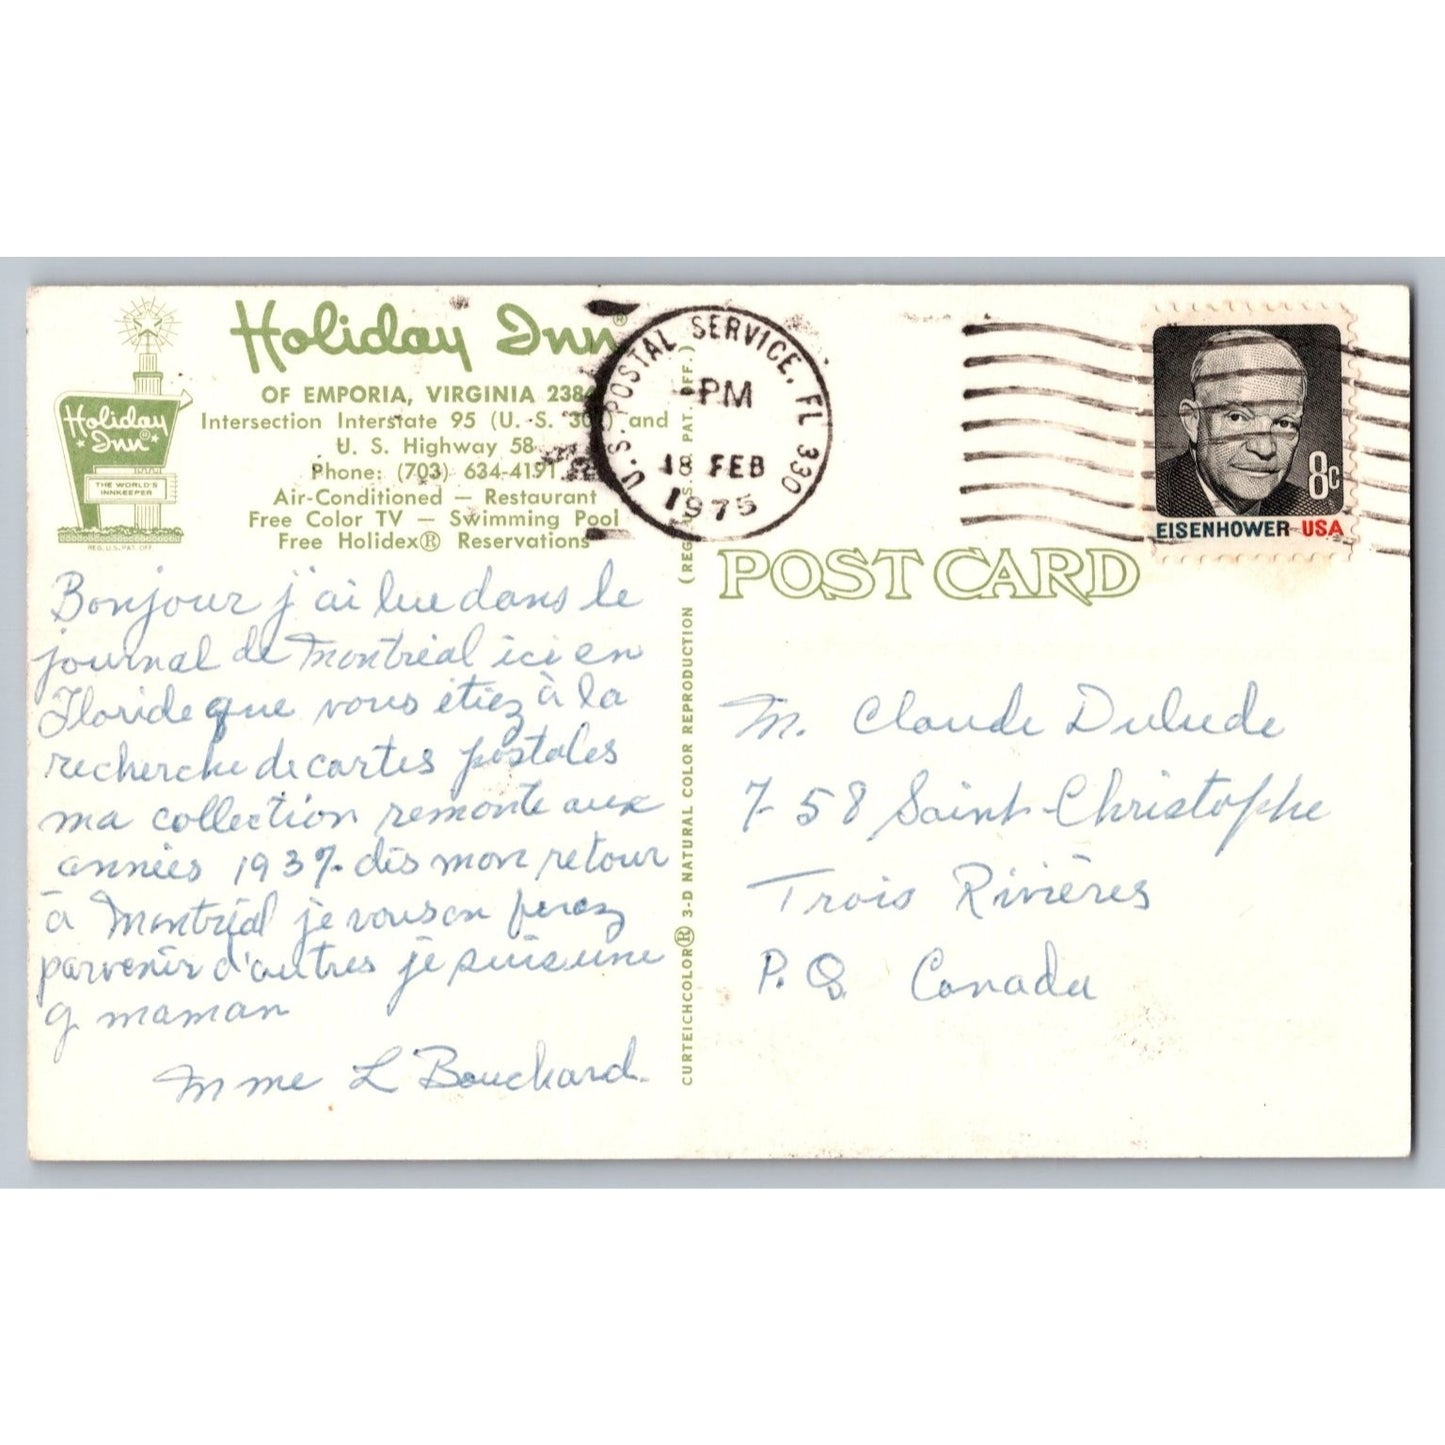 Holiday Inn®
OF EMPORIA, VIRGINIA
Intersection Interstate 95 (U. S. 301) and
U. S. Highway 58
Phone: (703) 634-4191
Air-Conditioned — Restaurant
Free Color TV — Swimming Pool
Free Holidex® Reservations
Holiday Inn®
THE WORLD'S
INNKEEPER
REG. U.S. PAT. OFF.
Bonjour j'ai lue dans le
journal de Montréal ici en
Floride que vous étiez à la
recherche de cartes postales
ma collection remonte aux
années 1937. dès mon retour
à Montréal je vous en ferez
parvenir d'autres je suis une
g maman
Mme L Bouchard.
CURTEICHCOLOR® 3-D NATURAL COLOR REPRODUCTION (REG. U.S. PAT. OFF.)
U.S. POSTAL SERVICE, FL 330
PM
18 FEB
1975
8c
EISENHOWER USA
POST CARD
M. Claude Dulude
758 Saint-Christophe
Trois Rivières
P. Q. Canada